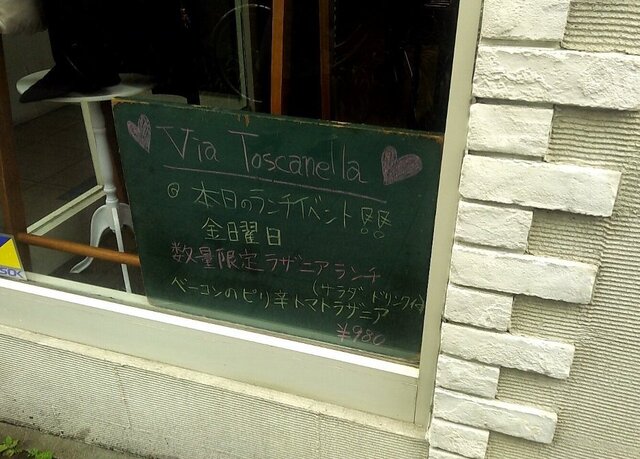 Via Toscanella
◎ 本日のランチイベント!!
金曜日
数量限定ラザニアランチ
(サラダ ドリンク付)
ベーコンのピリ辛トマトラザニア
¥980
SOK